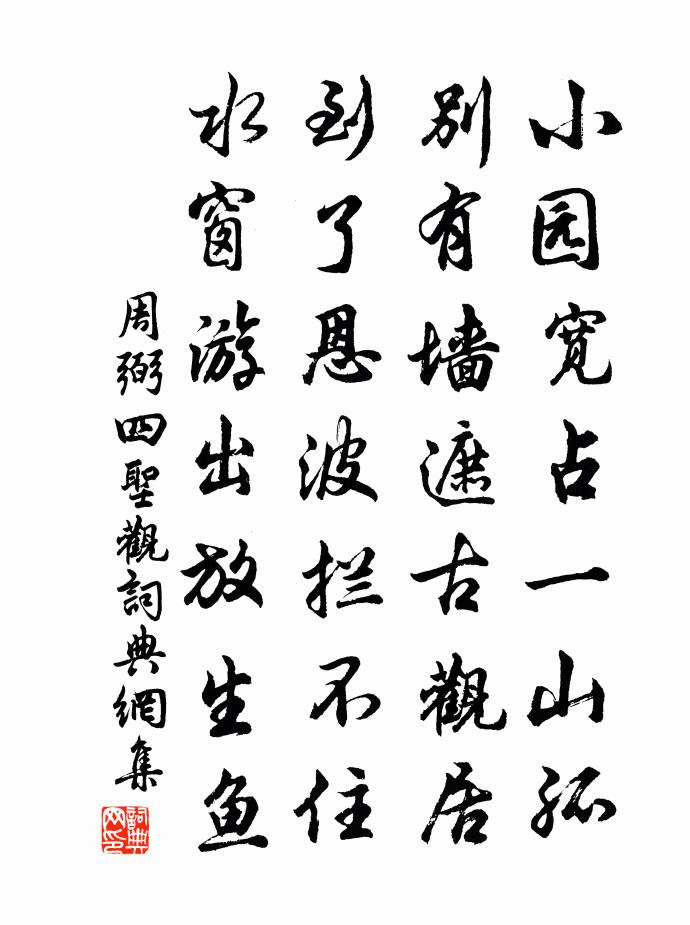 小园宽占一山孤
别有墙遮古觀居
到了恩波拦不住
水窗游出放生鱼
周弼四聖觀詞典網集
詞典网印